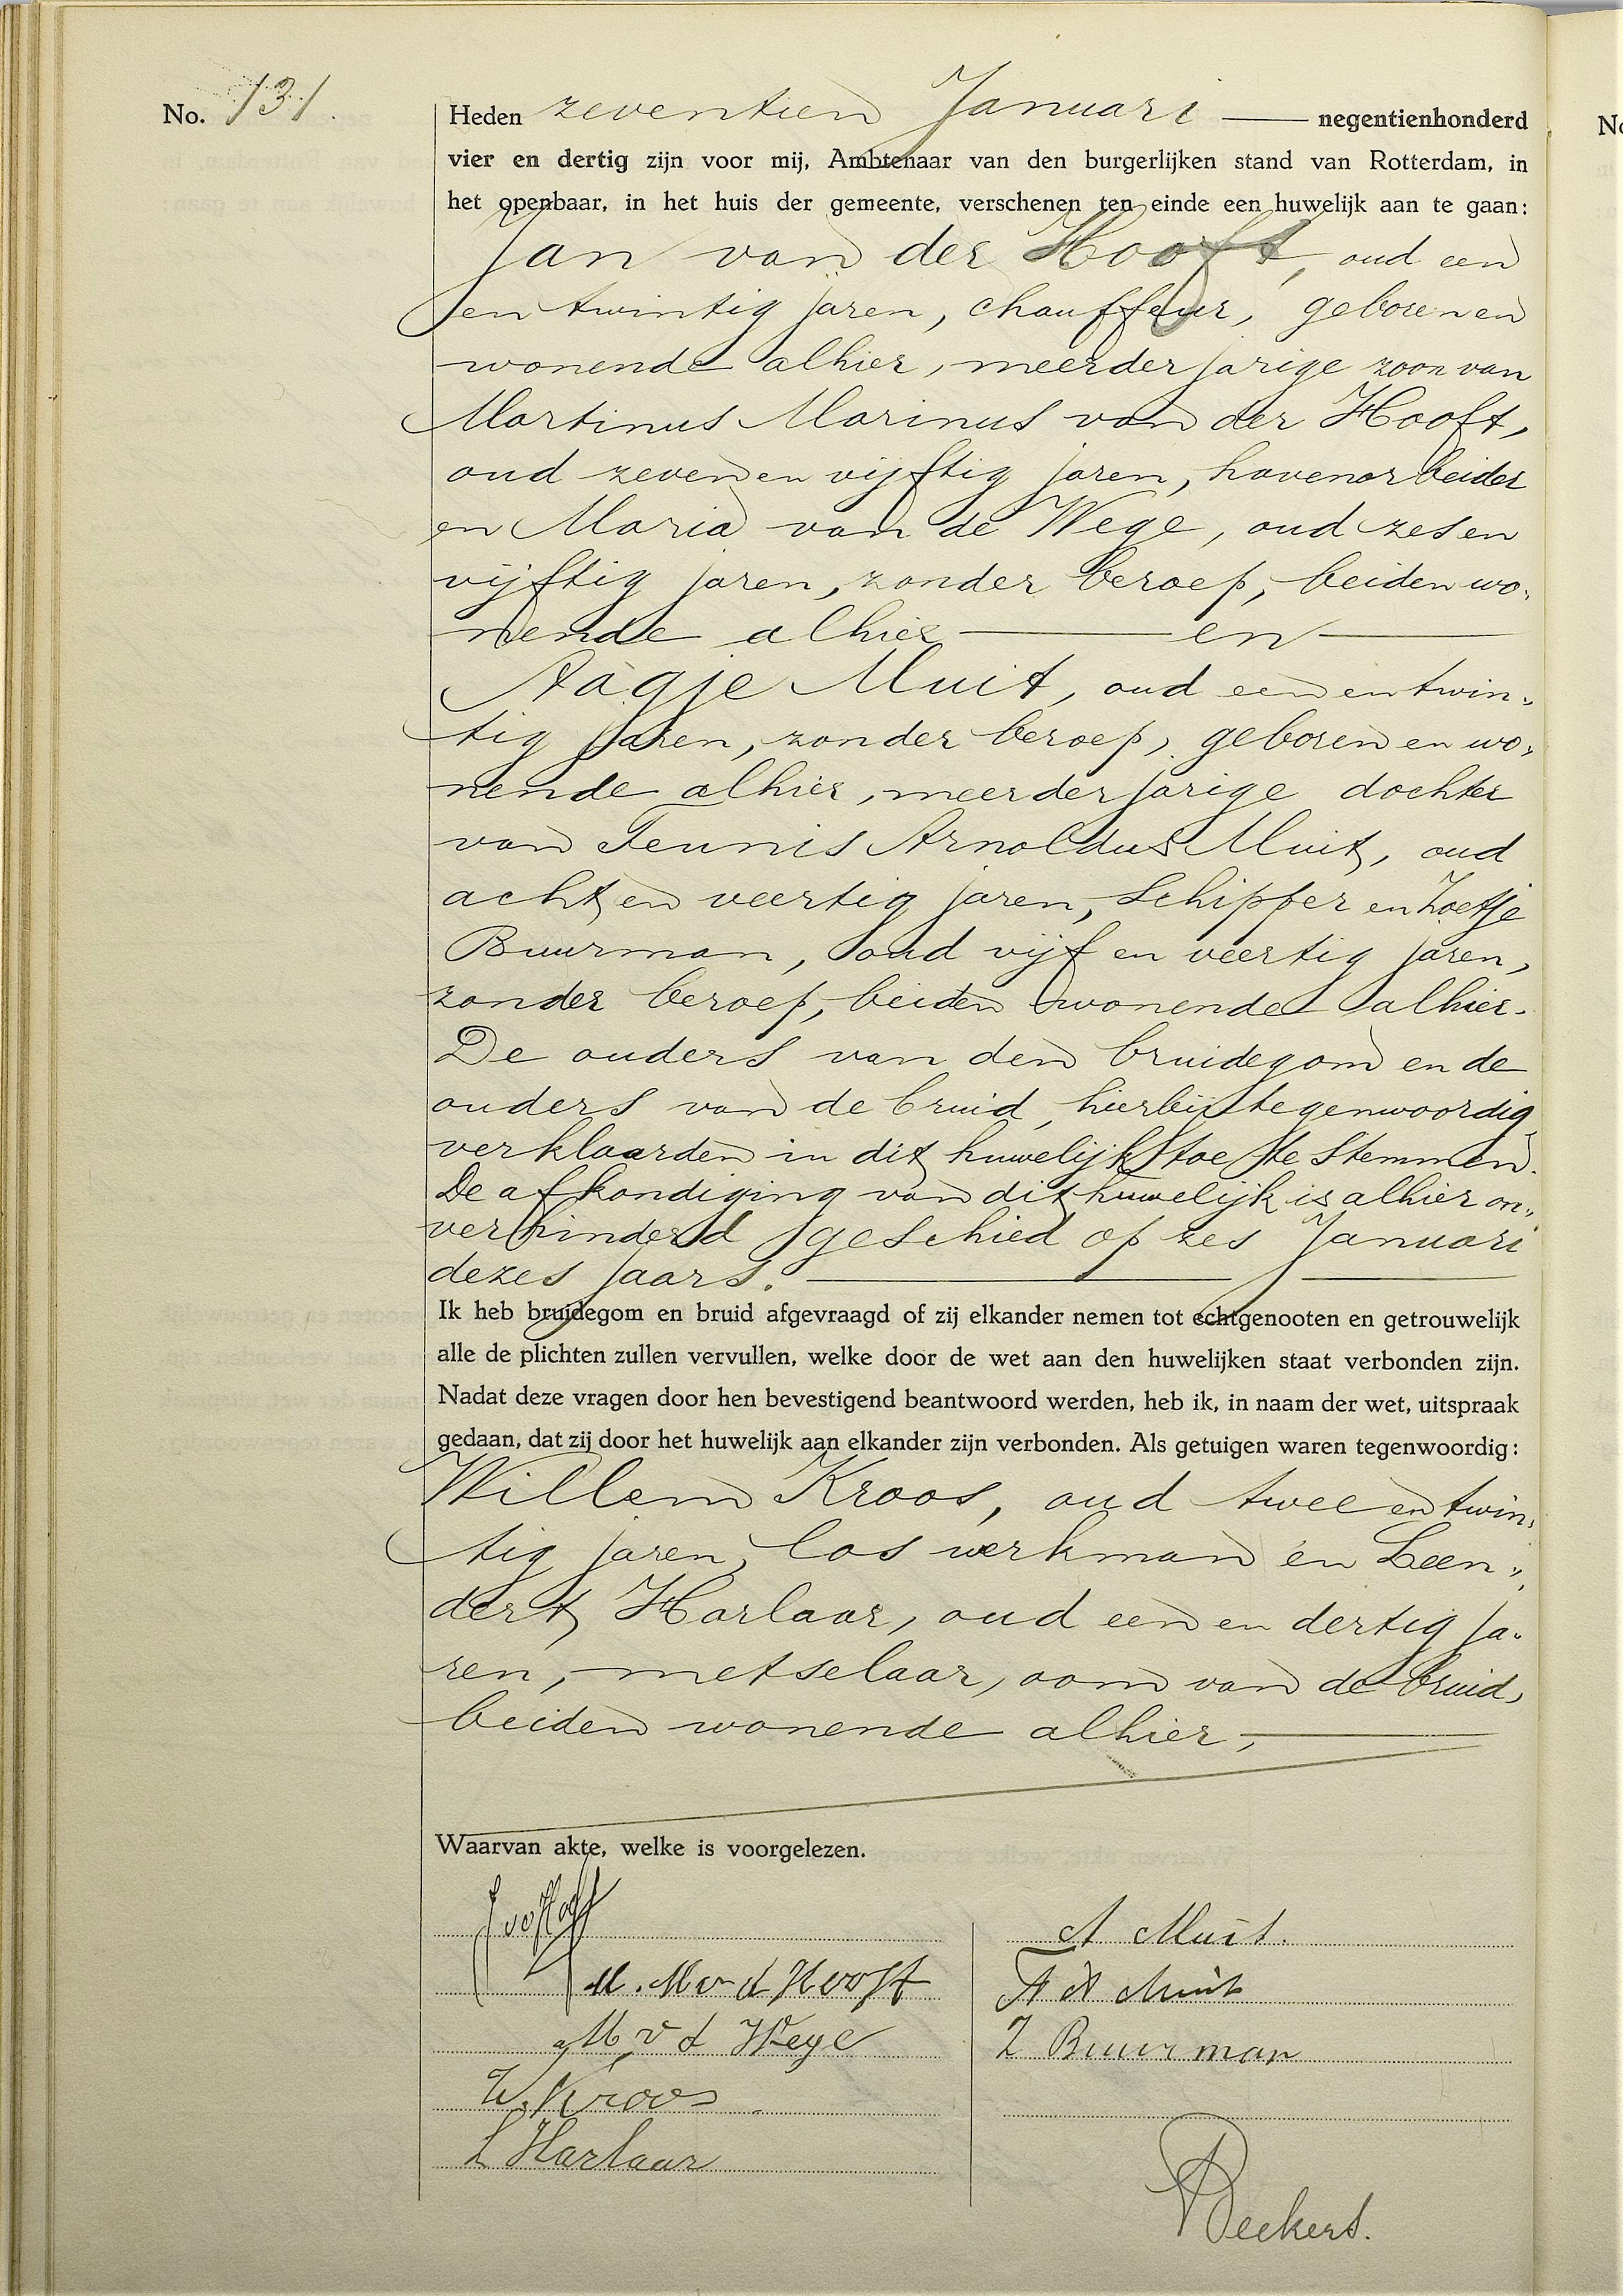 No. 131.
Heden zeventien Januari negentienhonderd
vier en dertig zijn voor mij, Ambtenaar van den burgerlijken stand van Rotterdam, in
het openbaar, in het huis der gemeente, verschenen ten einde een huwelijk aan te gaan:
Jan van der Hooft, oud een
en twintig jaren, chauffeur, geboren en
wonende alhier, meerderjarige zoon van
Martinus Marinus van der Hooft,
oud zeven en vijftig jaren, havenarbeider
en Maria van de Wege, oud zes en
vijftig jaren, zonder beroep, beiden wo„
nende alhier en
Aagje Muit, oud een en twin„
tig jaren, zonder beroep, geboren en wo„
nende alhier, meerderjarige dochter
van Teunis Arnoldus Muit, oud
acht en veertig jaren, schipper en Zoetje
Buurman, oud vijf en veertig jaren,
zonder beroep, beiden wonende alhier.
De ouders van den bruidegom en de
ouders van de bruid, hierbij tegenwoordig,
verklaarden in dit huwelijk toe te stemmen.
De afkondiging van dit huwelijk is alhier on„
verhinderd geschied op zes Januari
dezes jaars.
Ik heb bruidegom en bruid afgevraagd of zij elkander nemen tot echtgenooten en getrouwelijk
alle de plichten zullen vervullen, welke door de wet aan den huwelijken staat verbonden zijn.
Nadat deze vragen door hen bevestigend beantwoord werden, heb ik, in naam der wet, uitspraak
gedaan, dat zij door het huwelijk aan elkander zijn verbonden. Als getuigen waren tegenwoordig:
Willem Kroos, oud twee en twin„
tig jaren, los werkman en Leen„
dert Harlaar, oud een en dertig ja„
ren, metselaar, oom van de bruid,
beiden wonende alhier,
Waarvan akte, welke is voorgelezen.
J vd Hooft
M. M v d Hooft
M v d Wege
W. Kroos
L Harlaar
A Muit.
T A Muit
Z Buurman
Deckers.